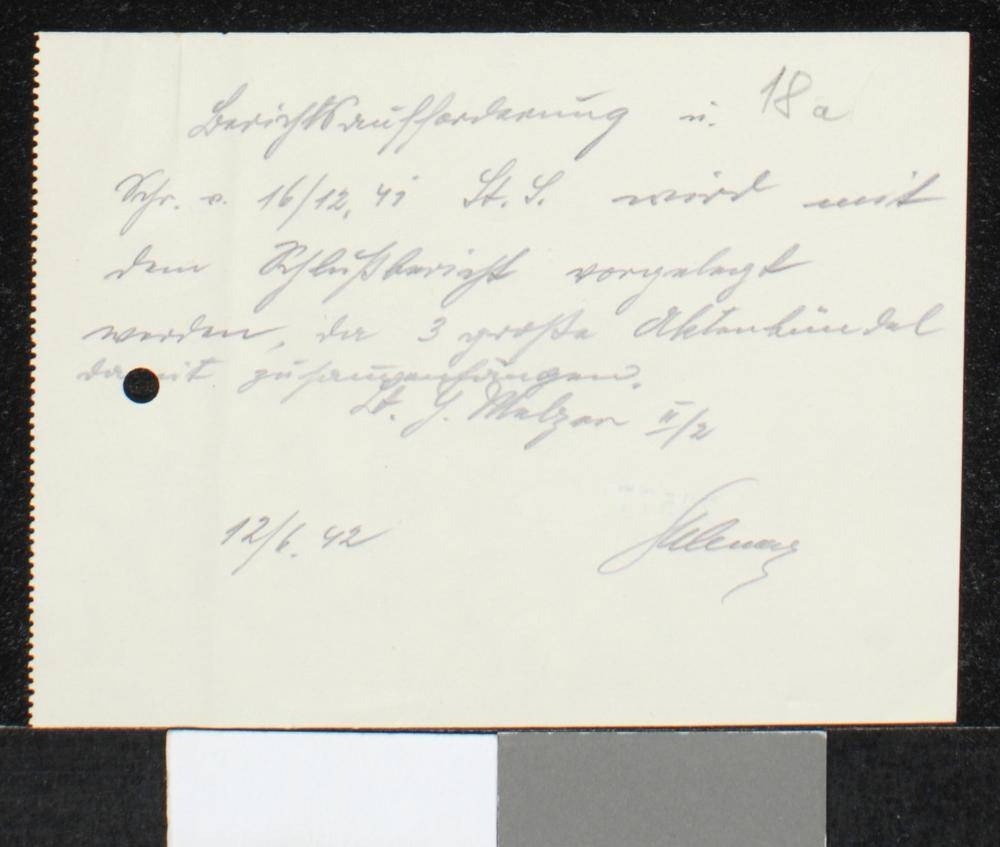 18a
Berichtsaufforderung u.
Schr. v. 16/12. 41 St. S. wird mit
dem Schlußbericht vorgelegt
werden, da 3 große Aktenbündel
damit zusammenhängen.
Lt. H. Melzer II/2
12/6. 42